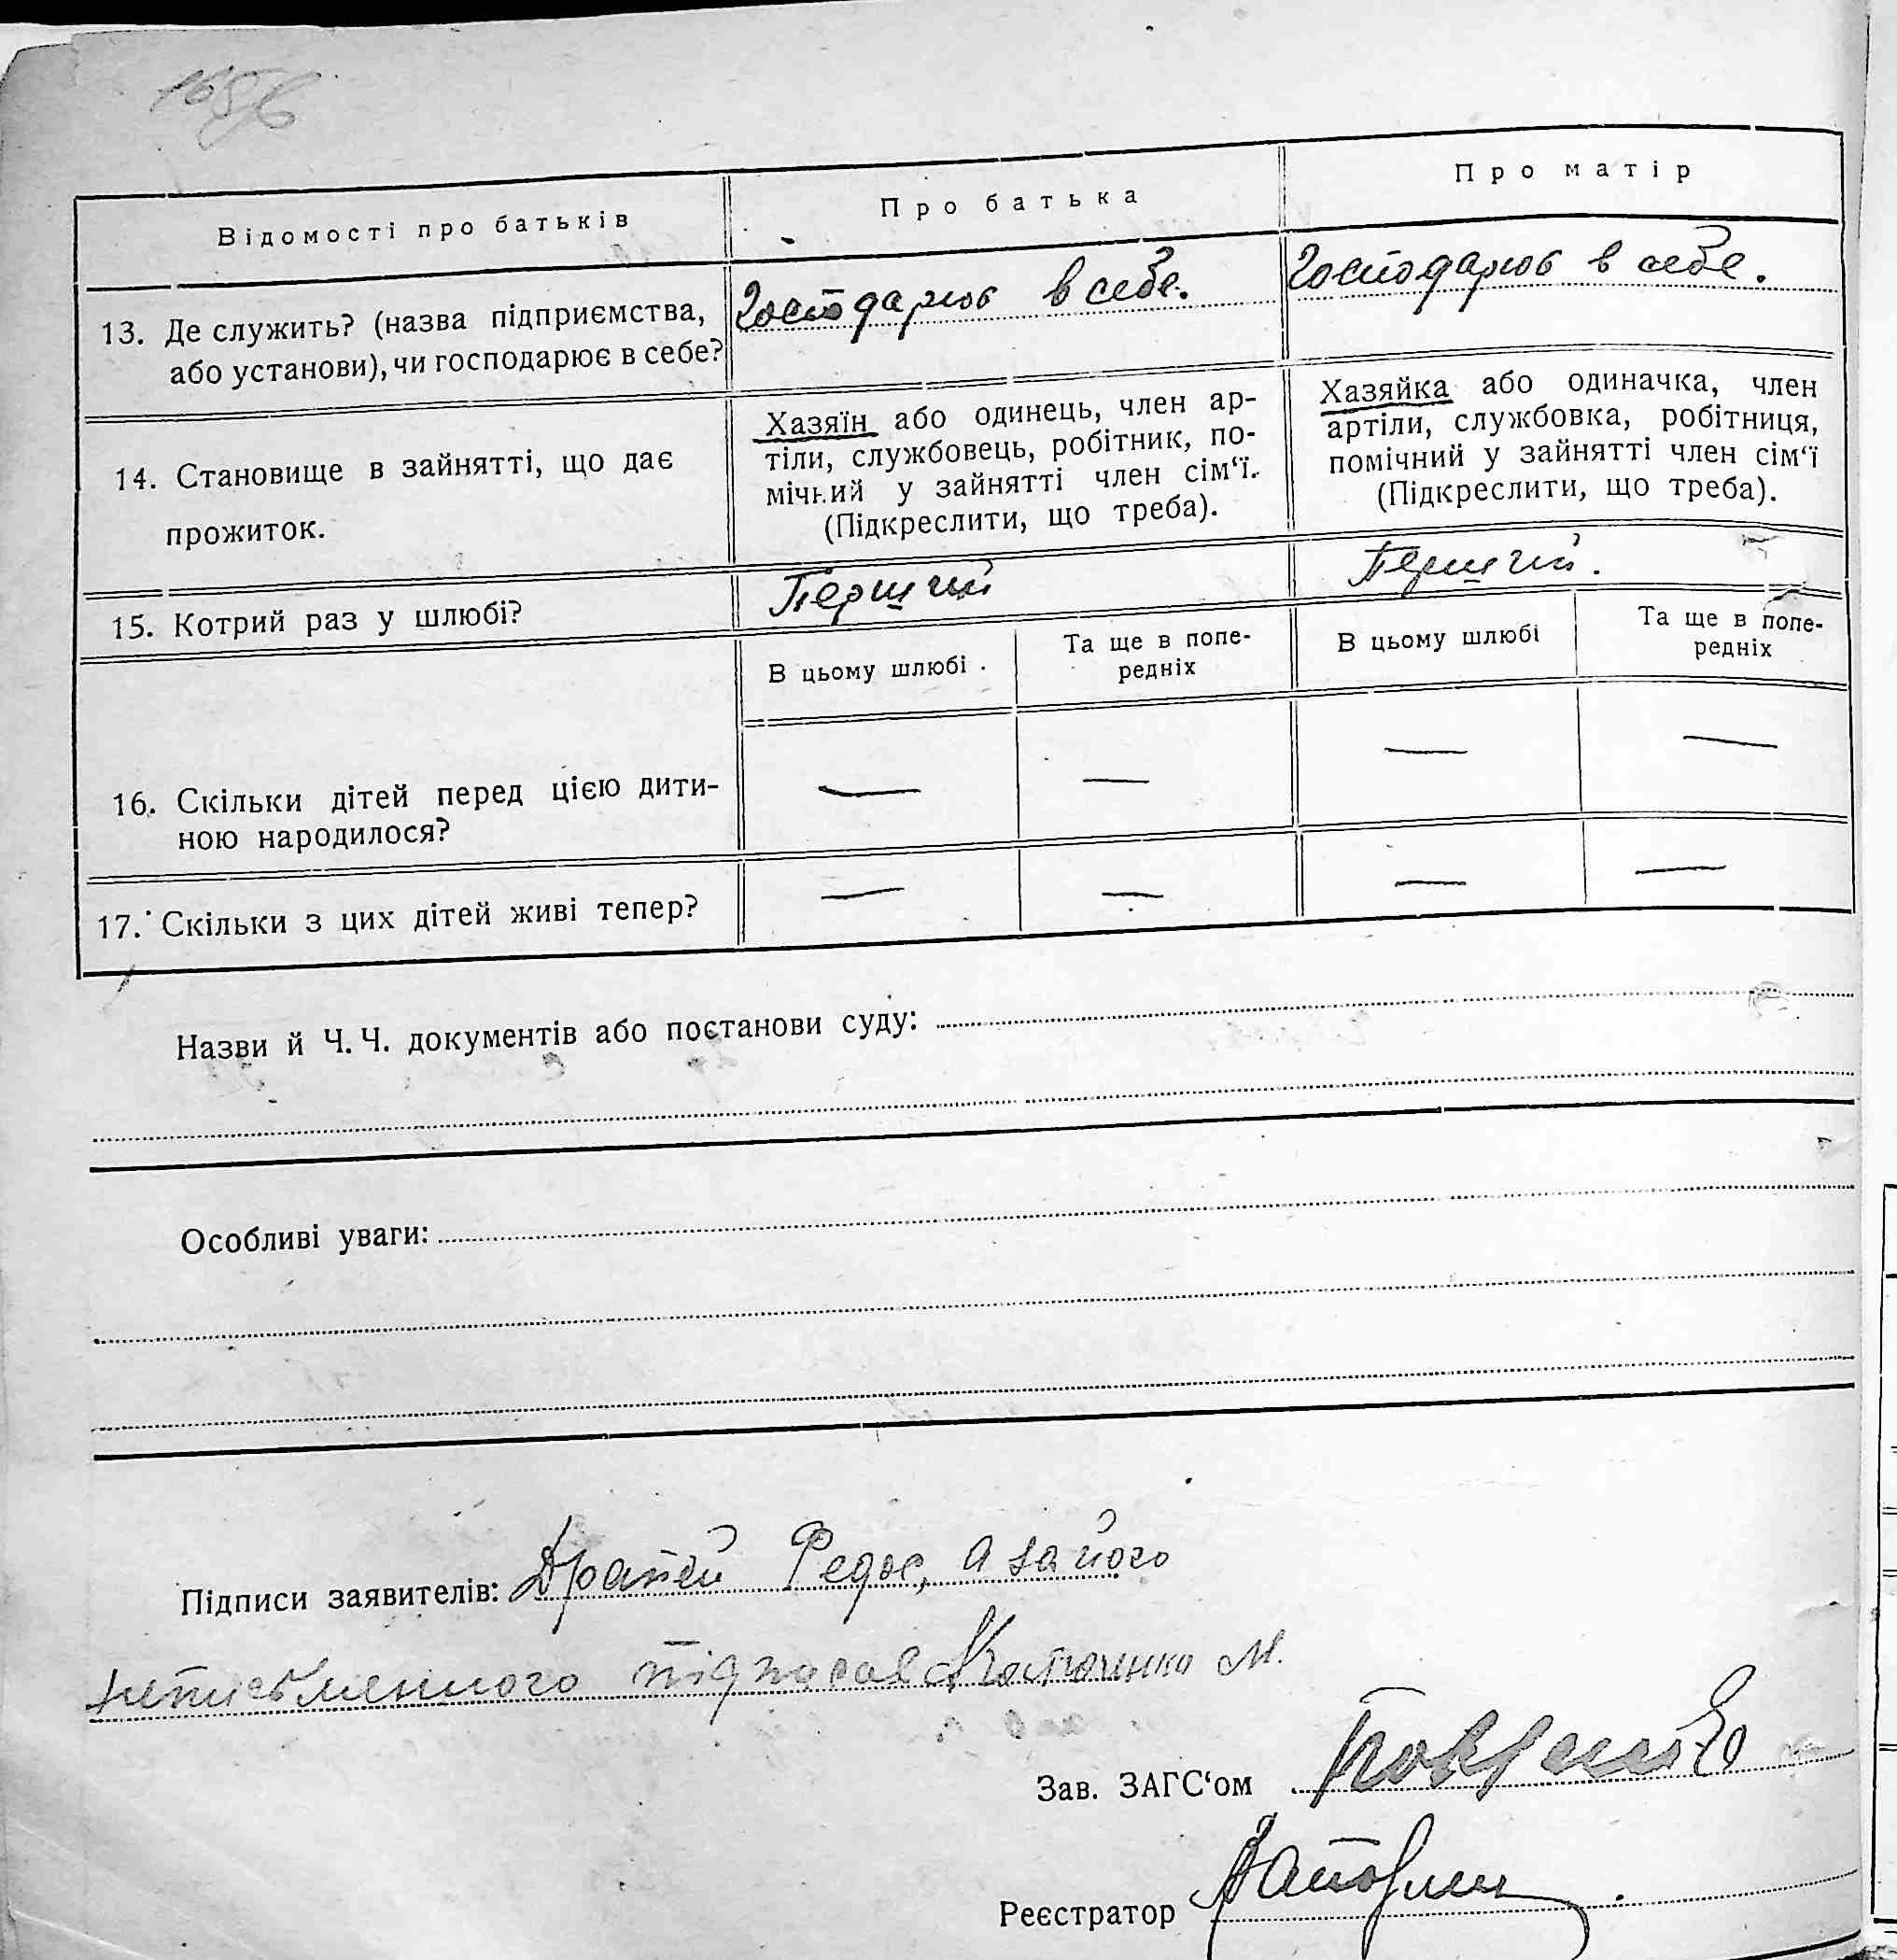 Відомості про батьків
Про батька
Про матір
13. Де служить? (назва підприємства,
або установи), чи господарює в себе?
Господарює в себе.
Господарює в себе.
14. Становище в зайнятті, що дає
прожиток.
Хазяїн або одинець, член ар-
тіли, службовець, робітник, по-
мічний у зайнятті член сім‘ї.
(Підкреслити, що треба).
Хазяйка або одиначка, член
артіли, службовка, робітниця,
помічний у зайнятті член сім‘ї
(Підкреслити, що треба).
15. Котрий раз у шлюбі?
Перший
Перший.
В цьому шлюбі
Та ще в попе-
редніх
В цьому шлюбі
Та ще в попе-
редніх
16. Скільки дітей перед цією дити-
ною народилося?
— — — —
17. Скільки з цих дітей живі тепер?
— — — —
Назви й Ч. Ч. документів або постанови суду:
Особливі уваги:
Підписи заявителів: Драпей Федос, а за його
неписьменного підписав М.
Зав. ЗАГС‘ом
Реєстратор